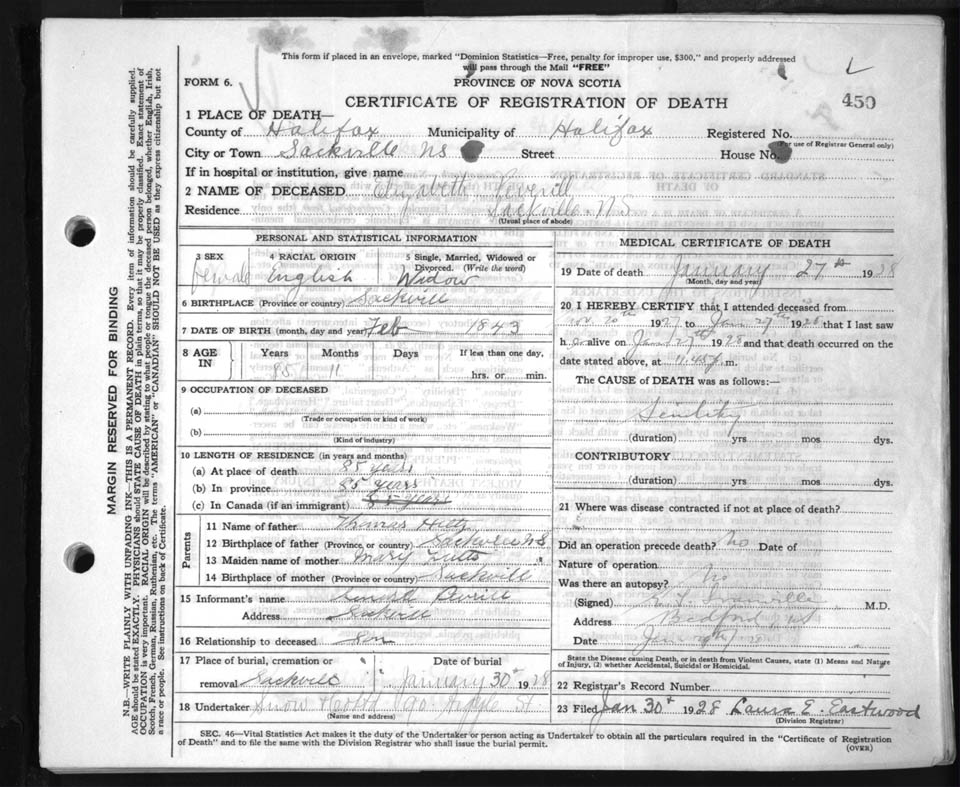 This form if placed in an envelope, marked "Dominion Statistics—Free, penalty for improper use, $300," and properly addressed
will pass through the Mail "FREE"
FORM 6.
PROVINCE OF NOVA SCOTIA
CERTIFICATE OF REGISTRATION OF DEATH
450
1 PLACE OF DEATH—
County of Halifax Municipality of Halifax Registered No.
(For use of Registrar General only)
City or Town Sackville NS Street House No.
If in hospital or institution, give name
2 NAME OF DECEASED Elizabeth
Residence Sackville NS
(Usual place of abode)
PERSONAL AND STATISTICAL INFORMATION
3 SEX 4 RACIAL ORIGIN 5 Single, Married, Widowed or Divorced. (Write the word)
female English Widow
6 BIRTHPLACE (Province or country) Sackvill
7 DATE OF BIRTH (month, day and year) Feb 1843
8 AGE IN Years Months Days If less than one day,
85 11 hrs. or min.
9 OCCUPATION OF DECEASED
(a)
(Trade or occupation or kind of work)
(b)
(Kind of industry)
10 LENGTH OF RESIDENCE (in years and months)
(a) At place of death 85 years
(b) In province 85 years
(c) In Canada (if an immigrant) 85 years
Parents
11 Name of father Thomas Hiltz
12 Birthplace of father (Province or country) Sackville NS
13 Maiden name of mother Mary
14 Birthplace of mother (Province or country) Sackvill
15 Informant's name
Address Sackvill
16 Relationship to deceased Son
17 Place of burial, cremation or removal Sackvill Date of burial January 30th 1928
18 Undertaker Snow 90 Argyle St
(Name and address)
MEDICAL CERTIFICATE OF DEATH
19 Date of death January 27th 1928
(Month, day and year)
20 I HEREBY CERTIFY that I attended deceased from
Nov 20th 1927 to Jan 27th 1928 that I last saw
her alive on Jan 27th 1928 and that death occurred on the
date stated above, at 11.45 p.m.
The CAUSE of DEATH was as follows:—
Senility
(duration) yrs mos dys.
CONTRIBUTORY
(duration) yrs mos dys.
21 Where was disease contracted if not at place of death?
Did an operation precede death? No Date of
Nature of operation
Was there an autopsy? No
(Signed) M.D.
Address Bedford NS
Date
State the Disease causing Death, or in death from Violent Causes, state (1) Means and Nature
of Injury, (2) whether Accidental, Suicidal or Homicidal.
22 Registrar's Record Number
23 Filed Jan 30th 1928 Laura E. Eastwood
(Division Registrar)
SEC. 46—Vital Statistics Act makes it the duty of the Undertaker or person acting as Undertaker to obtain all the particulars required in the "Certificate of Registration
of Death" and to file the same with the Division Registrar who shall issue the burial permit.
(OVER)
MARGIN RESERVED FOR BINDING
N.B.—WRITE PLAINLY WITH UNFADING INK—THIS IS A PERMANENT RECORD. Every item of information should be carefully supplied.
AGE should be stated EXACTLY. PHYSICIANS should STATE CAUSE OF DEATH in plain terms, so that it may be properly classified. Exact statement of
OCCUPATION is very important. RACIAL ORIGIN will be described by stating to what people or tongue the deceased person belonged, whether English, Irish,
Scotch, French, German, Russian, Ruthenian, etc. The terms "AMERICAN" or "CANADIAN" SHOULD NOT BE USED as they express citizenship but not
a race or people. See instructions on back of Certificate.